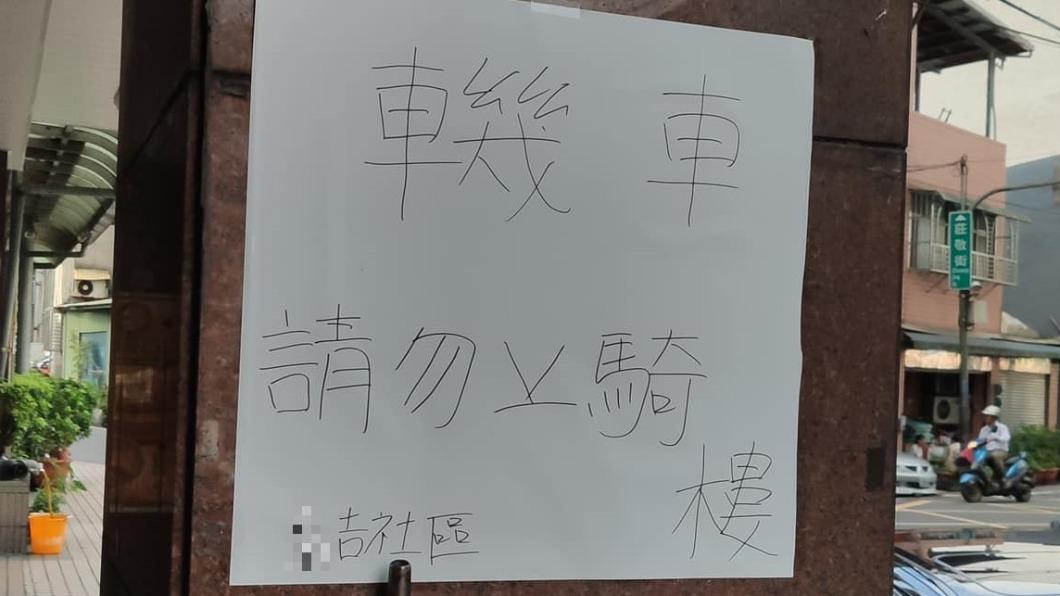 車幾 車
請勿上騎
樓
吉社區
莊敬街